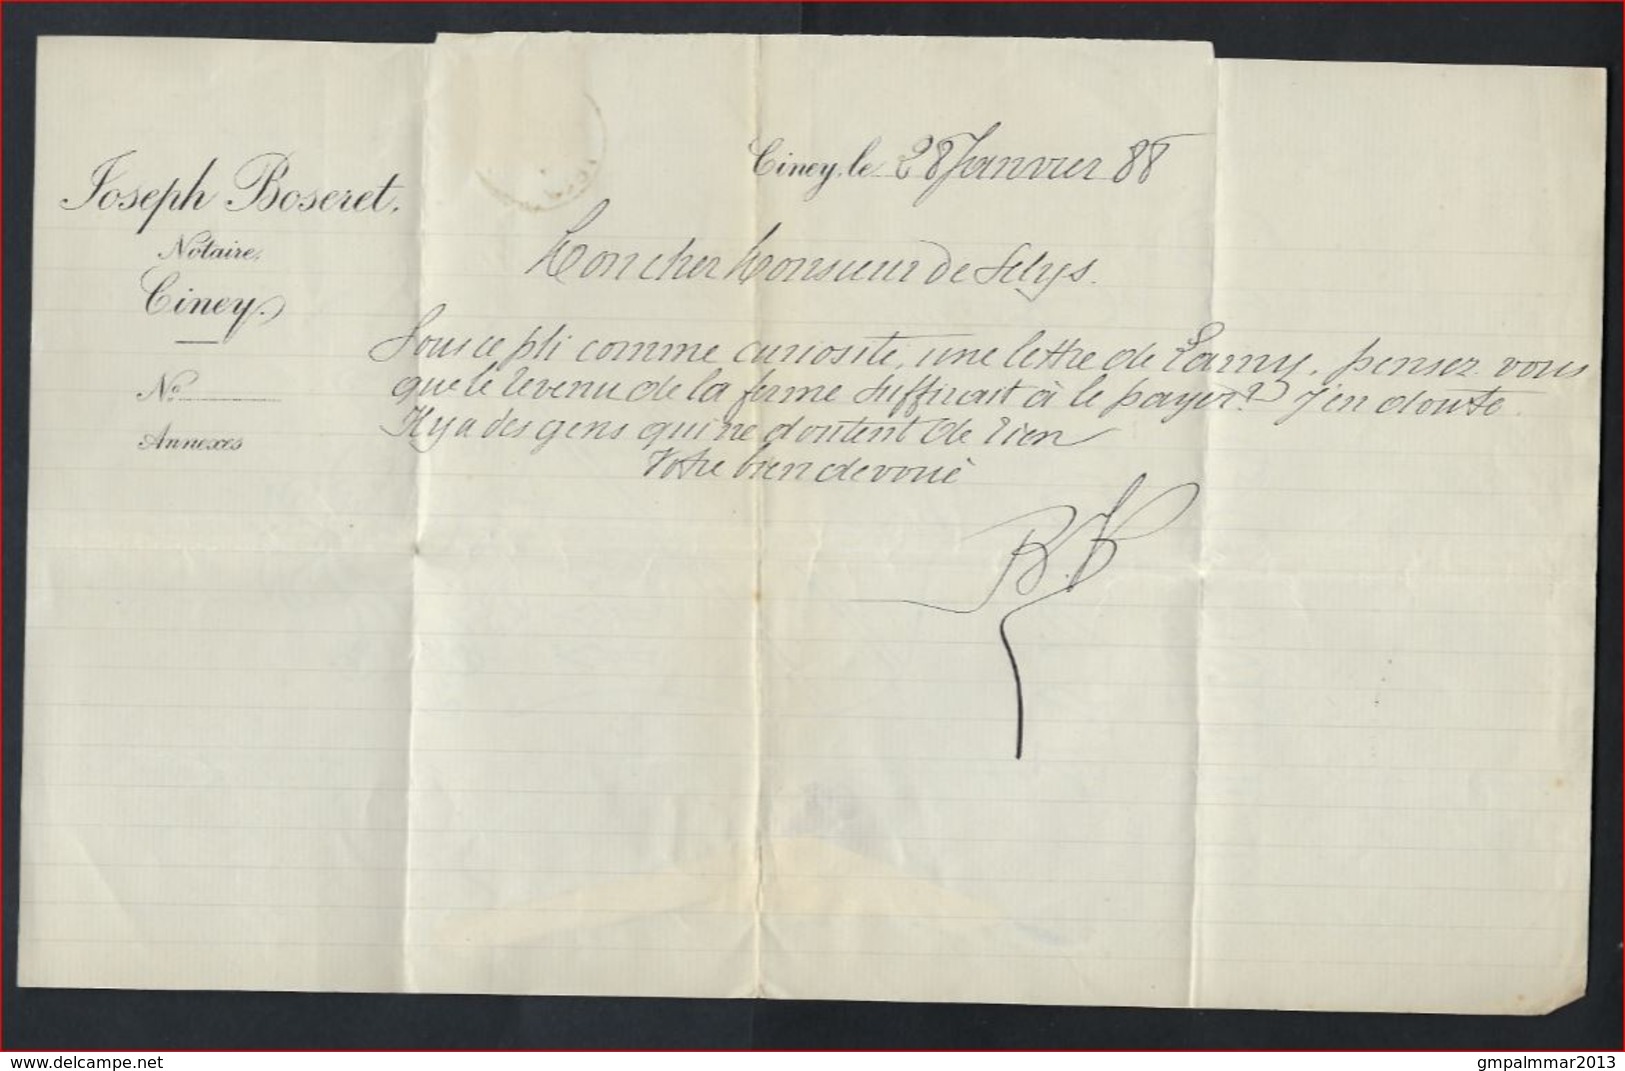 Joseph Boseret.
Notaire,
Ciney.
No
Annexes
Ciney, le 28 Janvier 88
Mon cher Monsieur de Selys.
Sous ce pli comme curiosité, une lettre de Lamy. pensez vous
que le revenu de la ferme suffirait à le payer? J'en doute.
Il y a des gens qui ne doutent de rien
Votre bien dévoué
delcampe.net
gmpalmmar2013